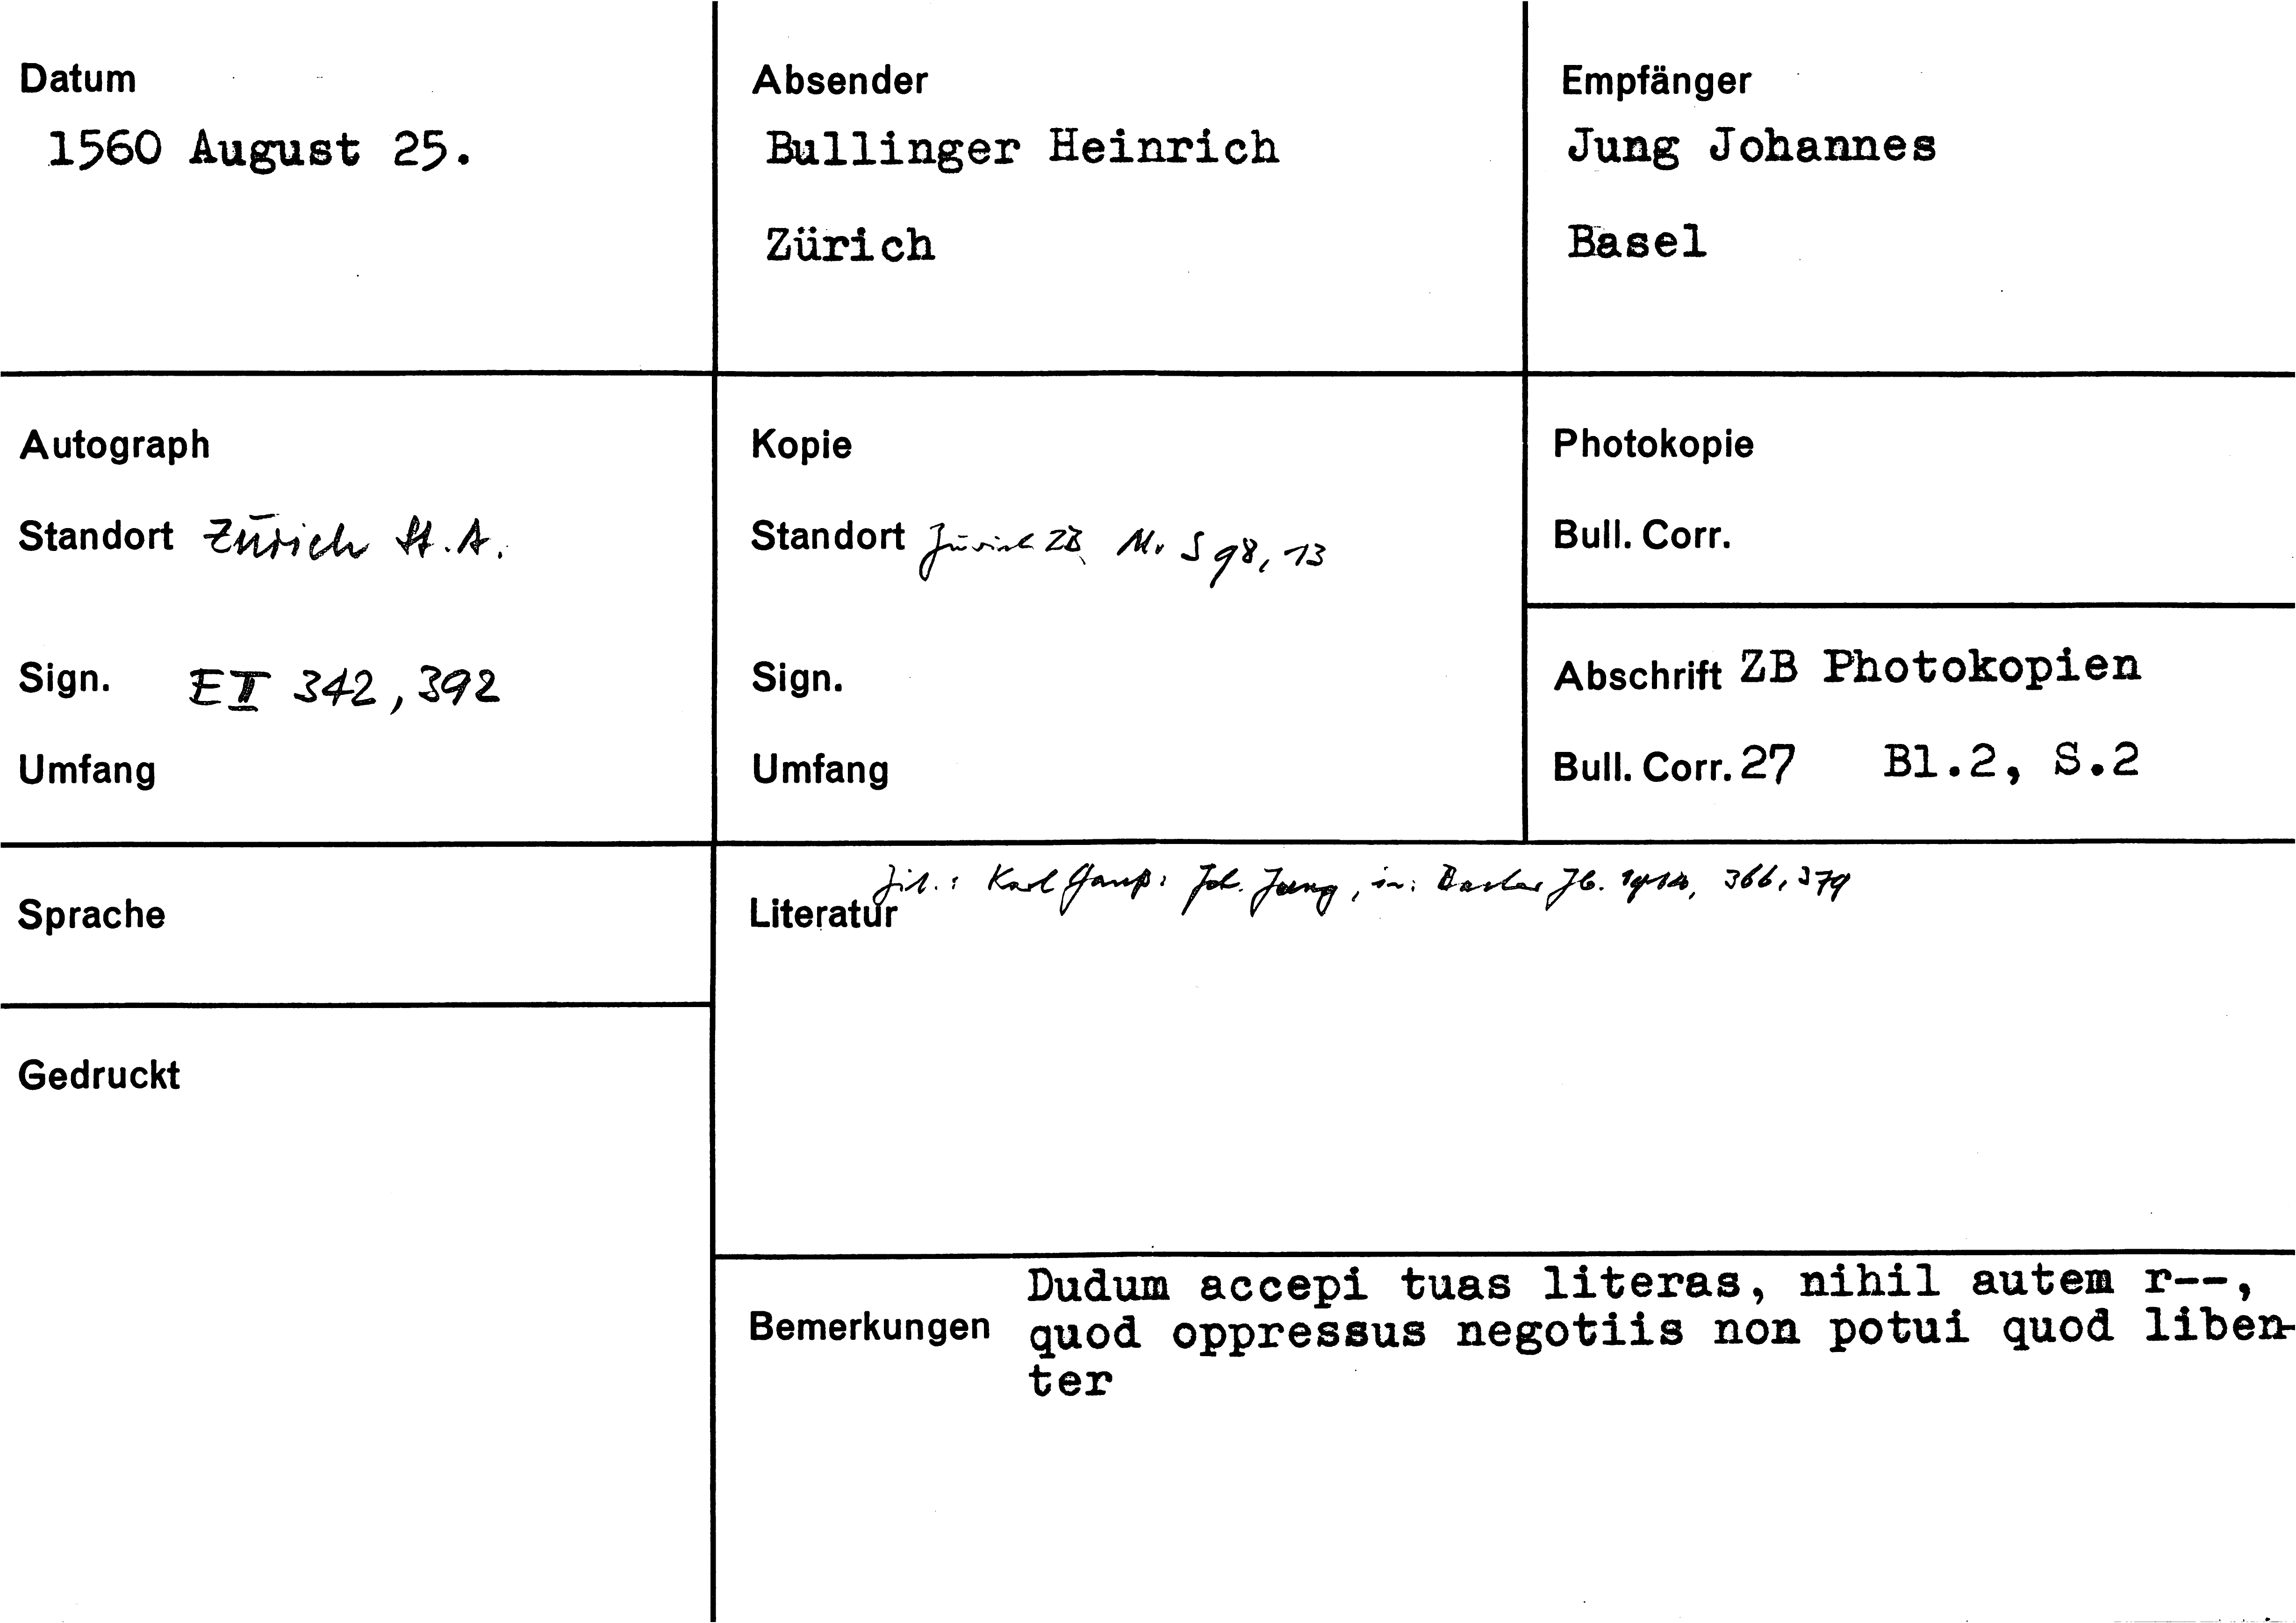 Datum
1560 August 25.
Absender
Bullinger Heinrich
Zürich
Empfänger
Jung Johannes
Basel
Autograph
Standort Zürich St. A.
Sign. E II 342, 392
Umfang
Kopie
Standort Zürich ZB, Ms S 98, 13
Sign.
Umfang
Photokopie
Bull. Corr.
Abschrift ZB Photokopien
Bull. Corr. 27 Bl.2, S.2
Sprache
Gedruckt
Zit.: Karl Gauß: Joh. Jung, in: Basler Jb. 366, 379
Literatur
Bemerkungen
Dudum accepi tuas literas, nihil autem r--,
quod oppressus negotiis non potui quod liben-
ter